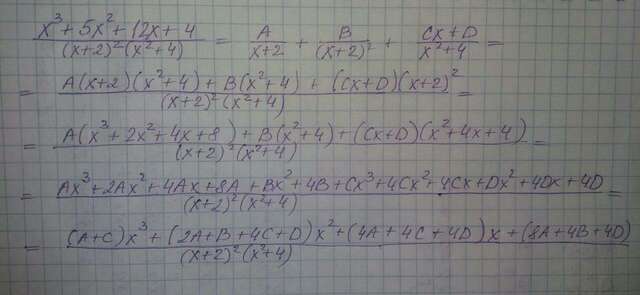 (x³ + 5x² + 12x + 4)/((x+2)²(x²+4)) = A/(x+2) + B/(x+2)² + (Cx+D)/(x²+4) =
= (A(x+2)(x²+4) + B(x²+4) + (Cx+D)(x+2)²)/((x+2)²(x²+4)) =
= (A(x³+2x²+4x+8) + B(x²+4) + (Cx+D)(x²+4x+4))/((x+2)²(x²+4)) =
= (Ax³+2Ax²+4Ax+8A+Bx²+4B+Cx³+4Cx²+4Cx+Dx²+4Dx+4D)/((x+2)²(x²+4)) =
= ((A+C)x³+(2A+B+4C+D)x²+(4A+4C+4D)x+(8A+4B+4D))/((x+2)²(x²+4))